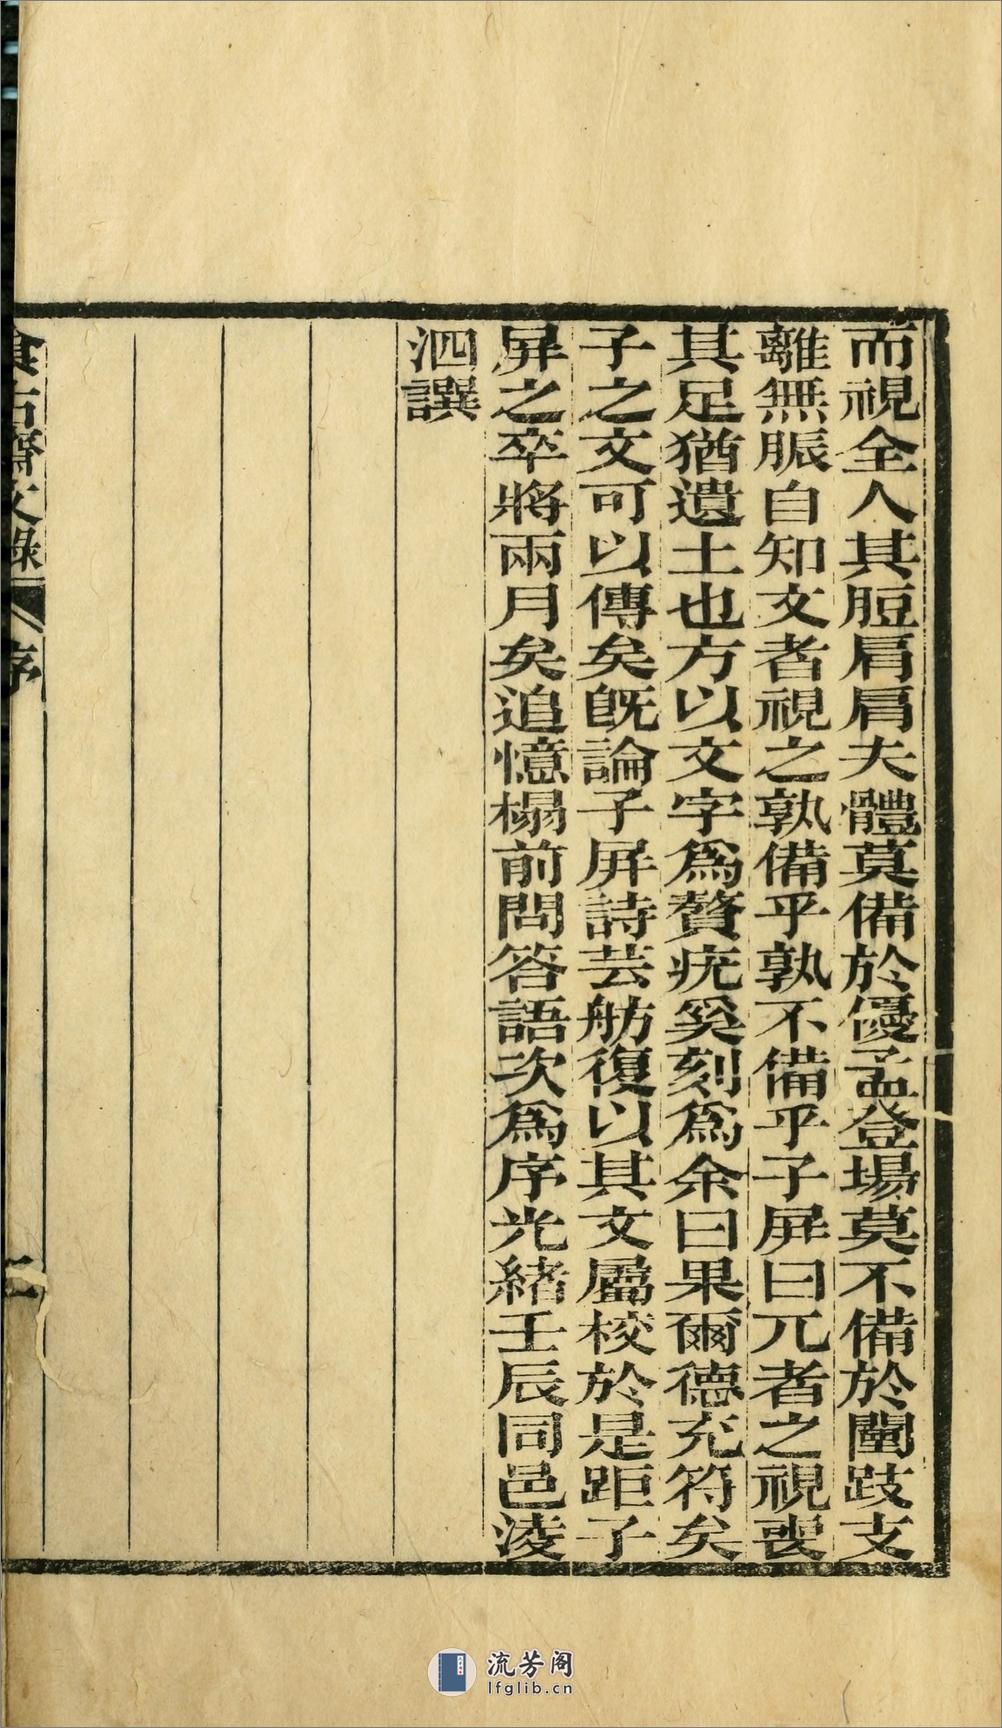 而視全人其脰肩肩夫體莫備於優孟登場莫不備於闉跂支
離無脤自知文者視之孰備乎孰不備乎子屏曰兀者之視喪
其足猶遺土也方以文字爲贅疣奚刻爲余曰果爾德充符矣
子之文可以傳矣旣論子屏詩芸舫復以其文屬校於是距子
屏之卒將兩月矣追憶榻前問答語次爲序光緒壬辰同邑淩
泗譔
食古齋文錄
序
二
流芳阁
lfglib.cn